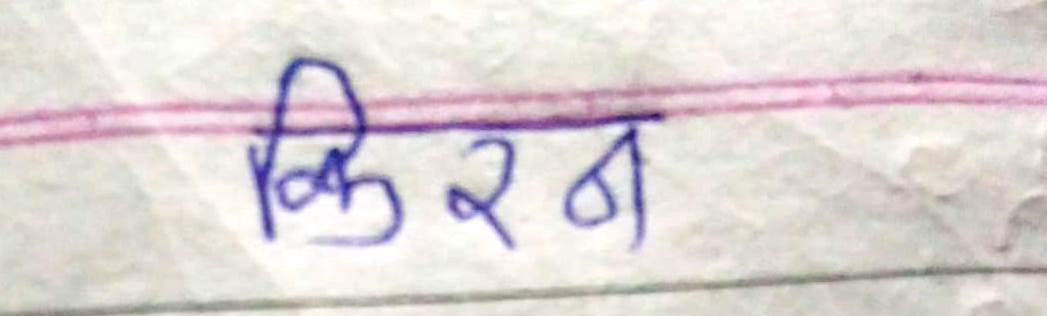 किरन